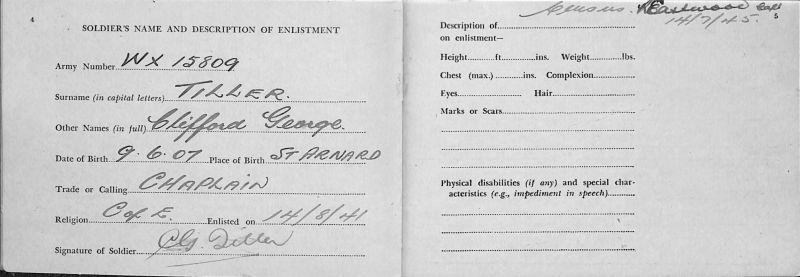 4
SOLDIER'S NAME AND DESCRIPTION OF ENLISTMENT
Army Number WX 15809
Surname (in capital letters) TILLER.
Other Names (in full) Clifford George.
Date of Birth 9.6.07 Place of Birth ST ARNARD
Trade or Calling CHAPLAIN
Religion C of E. Enlisted on 14/8/41
Signature of Soldier CG. Tiller
Census. Eastwood Capt
14/7/45.
5
Description of
on enlistment—
Height ft ins. Weight lbs.
Chest (max.) ins. Complexion
Eyes Hair
Marks or Scars
Physical disabilities (if any) and special char-
acteristics (e.g., impediment in speech)